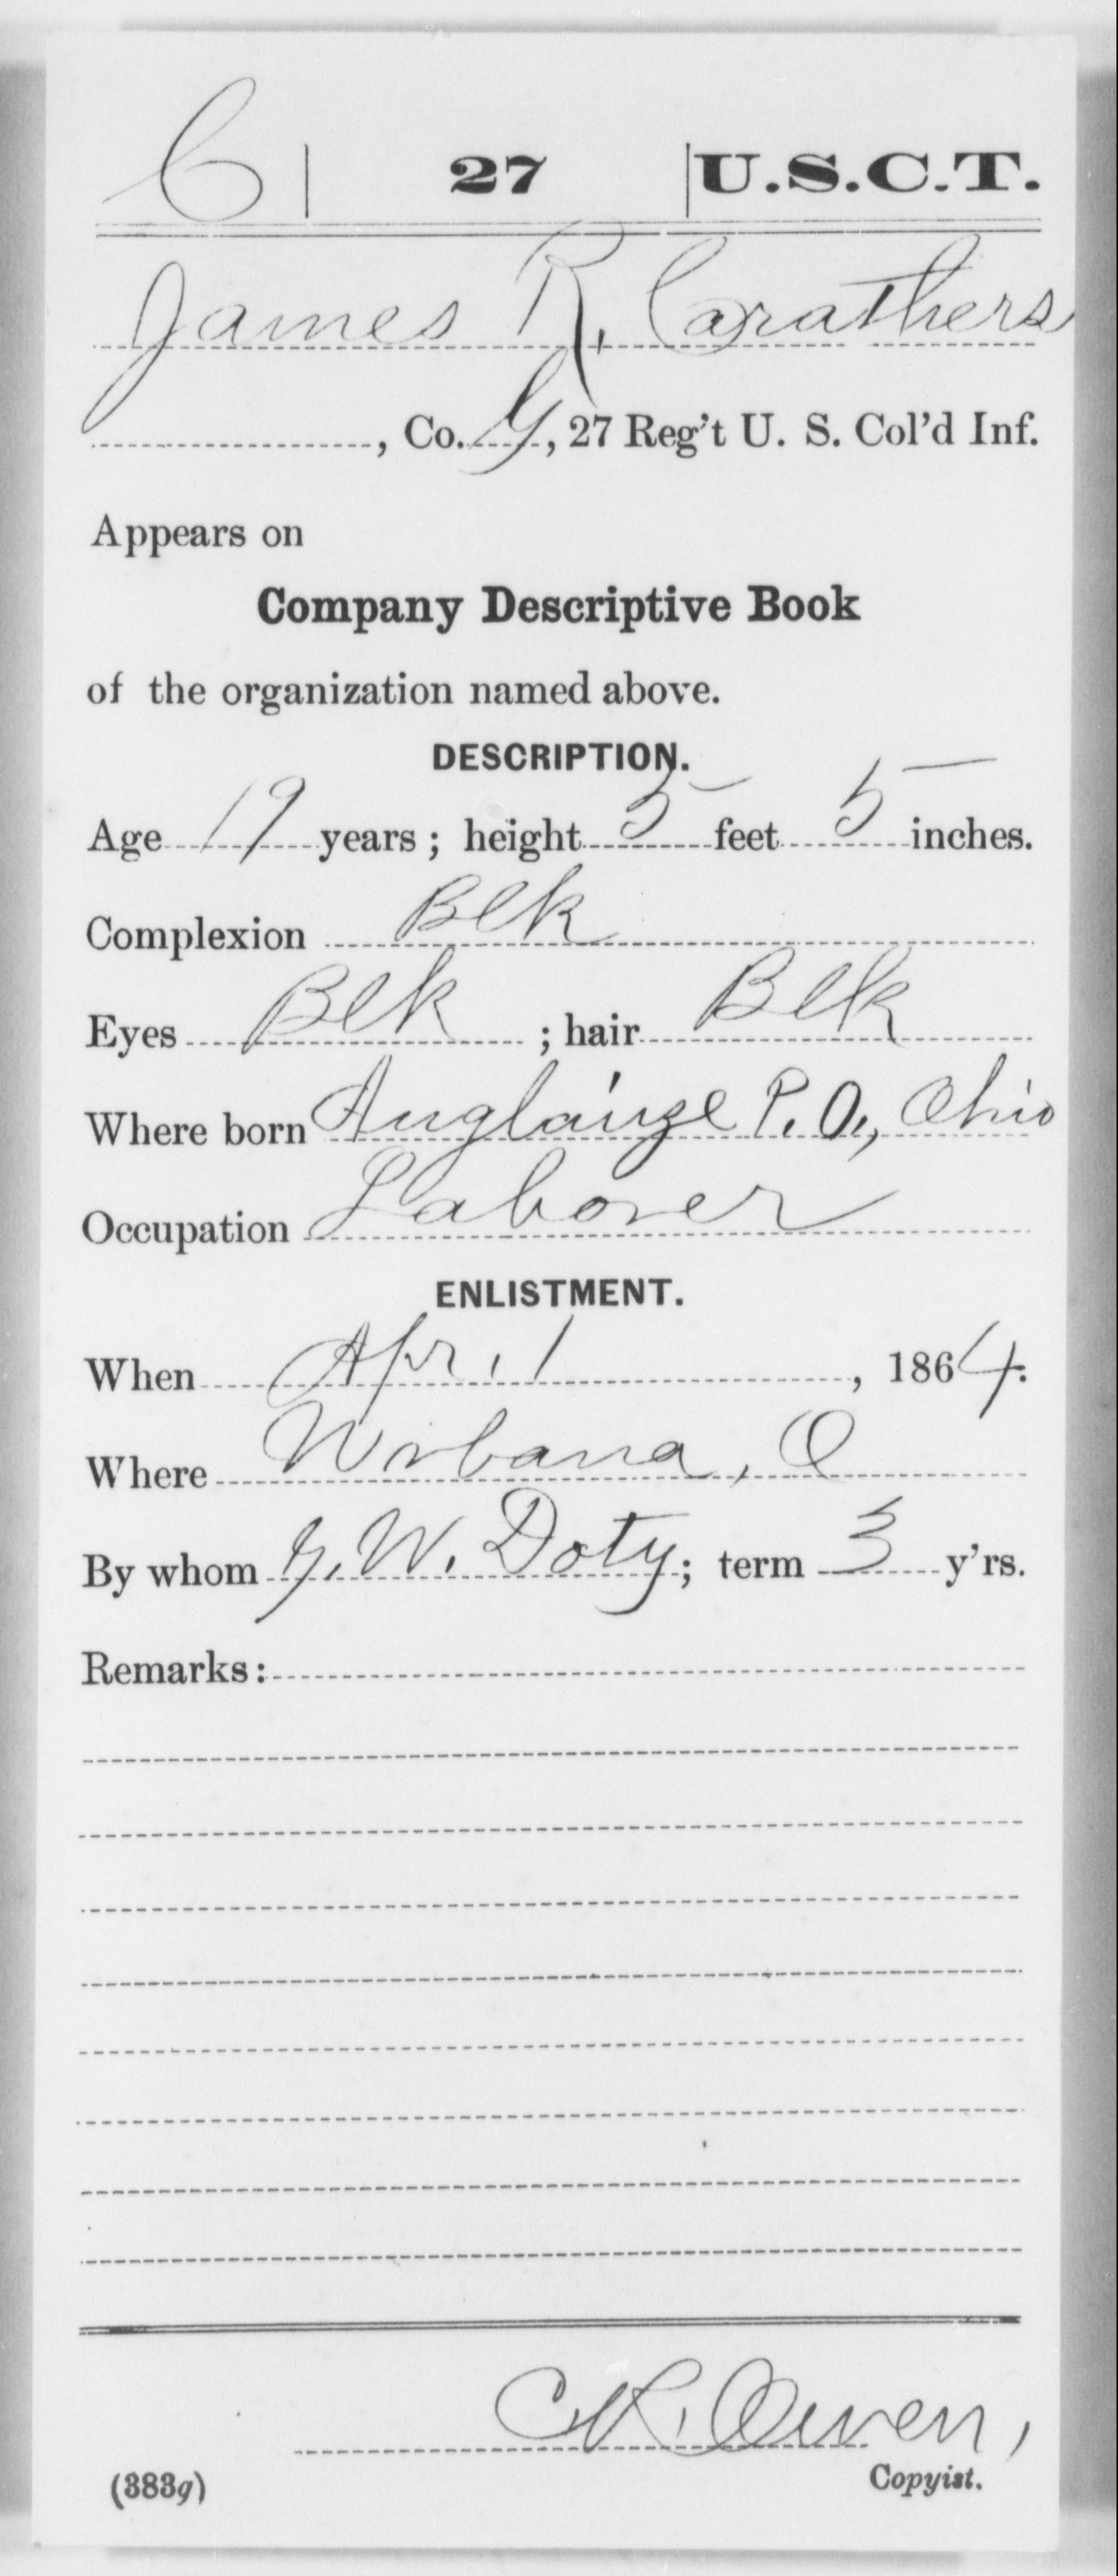 C | 27 | U.S.C.T.
James R. Carathers
, Co. G, 27 Reg't U. S. Col'd Inf.
Appears on
Company Descriptive Book
of the organization named above.
DESCRIPTION.
Age 19 years; height 5 feet 5 inches.
Complexion Blk
Eyes Blk ; hair Blk
Where born Auglaize P.O., Ohio
Occupation Laborer
ENLISTMENT.
When Apr. 1, 1864.
Where Urbana, O
By whom G. W. Doty; term 3 y'rs.
Remarks:
Owen,
Copyist.
(383g)